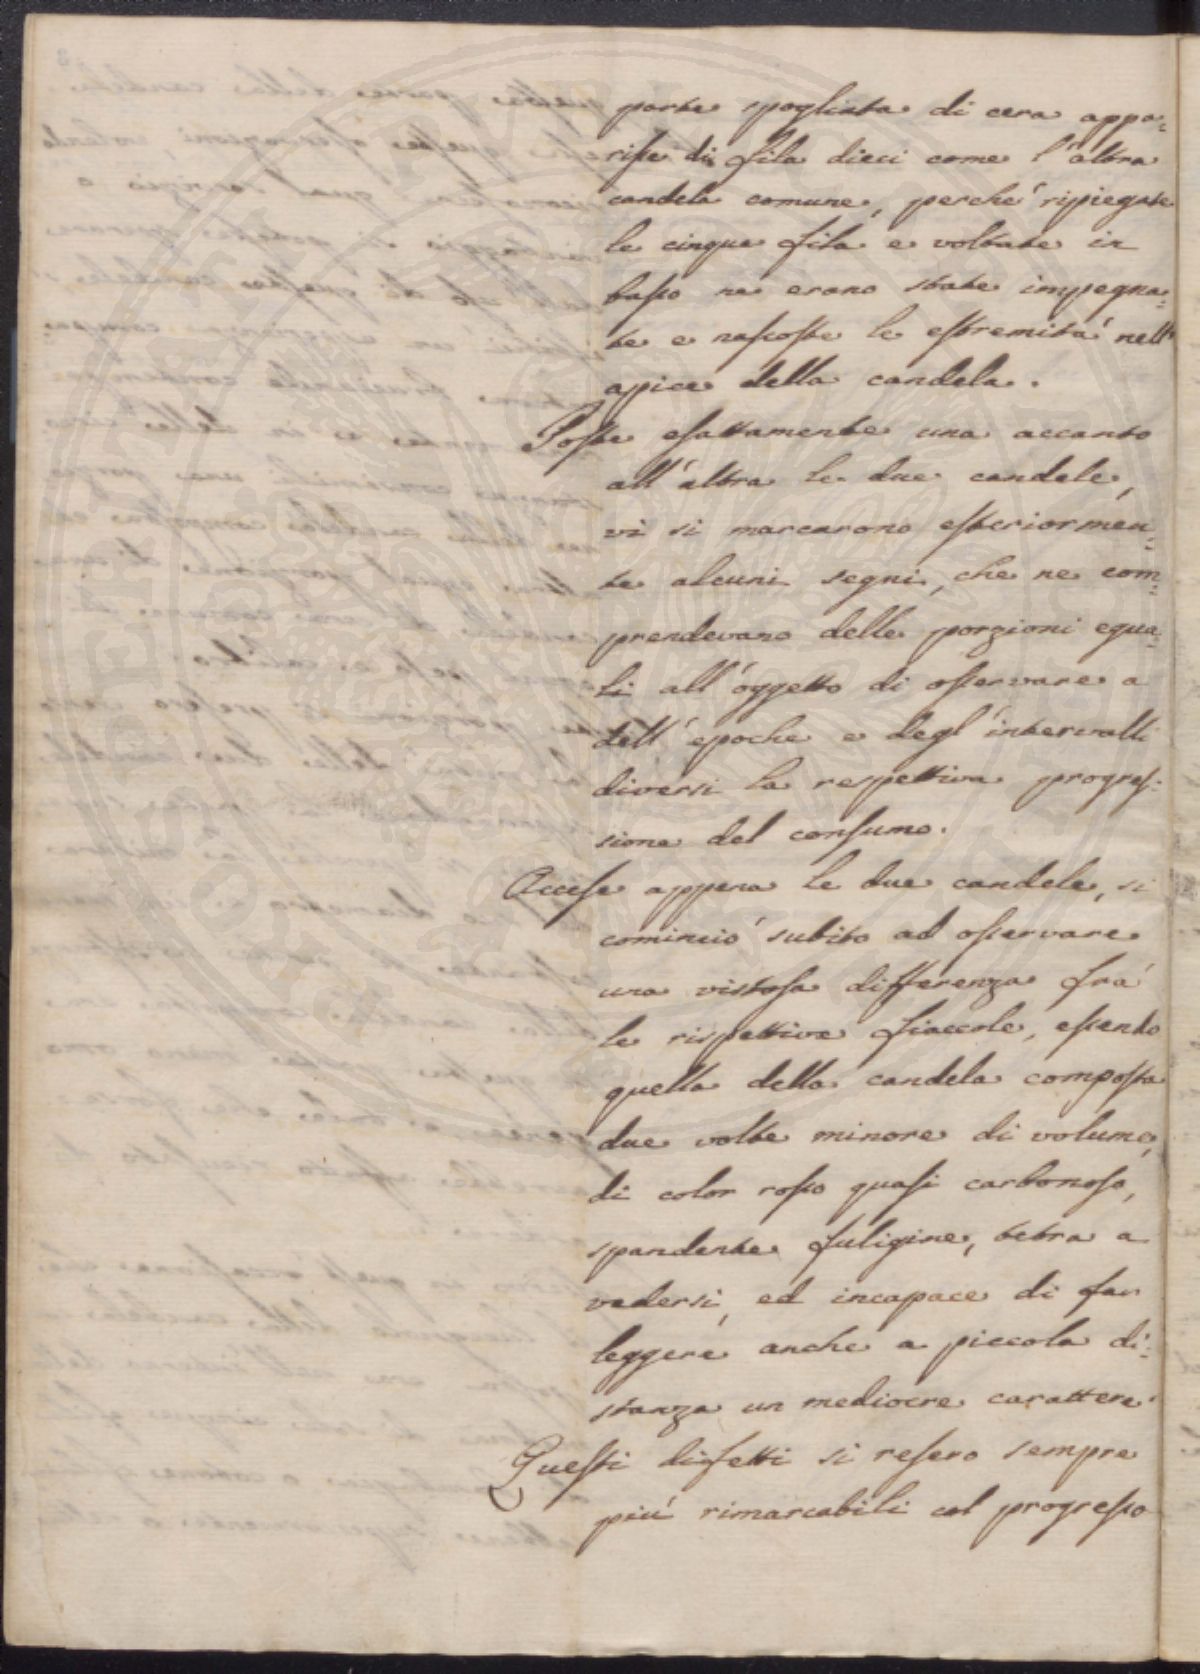 parte spogliata di cera appa=
risse di fila dieci come l'altra
candela comune, perché ripiegate
le cinque fila e voltate in
basso ne erano state impegna=
te e nascoste le estremità nell'
apice della candela.
Poste esattamente una accanto
all'altra le due candele,
vi si marcarono esteriormen=
te alcuni segni, che ne com=
prendevano delle porzioni egua=
li all'oggetto di osservare a
dell'epoche e degl'intervalli
diversi la respettiva progres=
sione del consumo.
Accese appena le due candele, si
cominciò subito ad osservare
una vistosa differenza frà
le rispettive fiaccole, essendo
quella della candela composta
due volte minore di volume,
di color rosso quasi carbonoso,
spandente fuligine, tetra a
vedersi, ed incapace di far
leggere anche a piccola di=
stanza un mediocre carattere.
Questi difetti si resero sempre
più rimarcabili col progresso